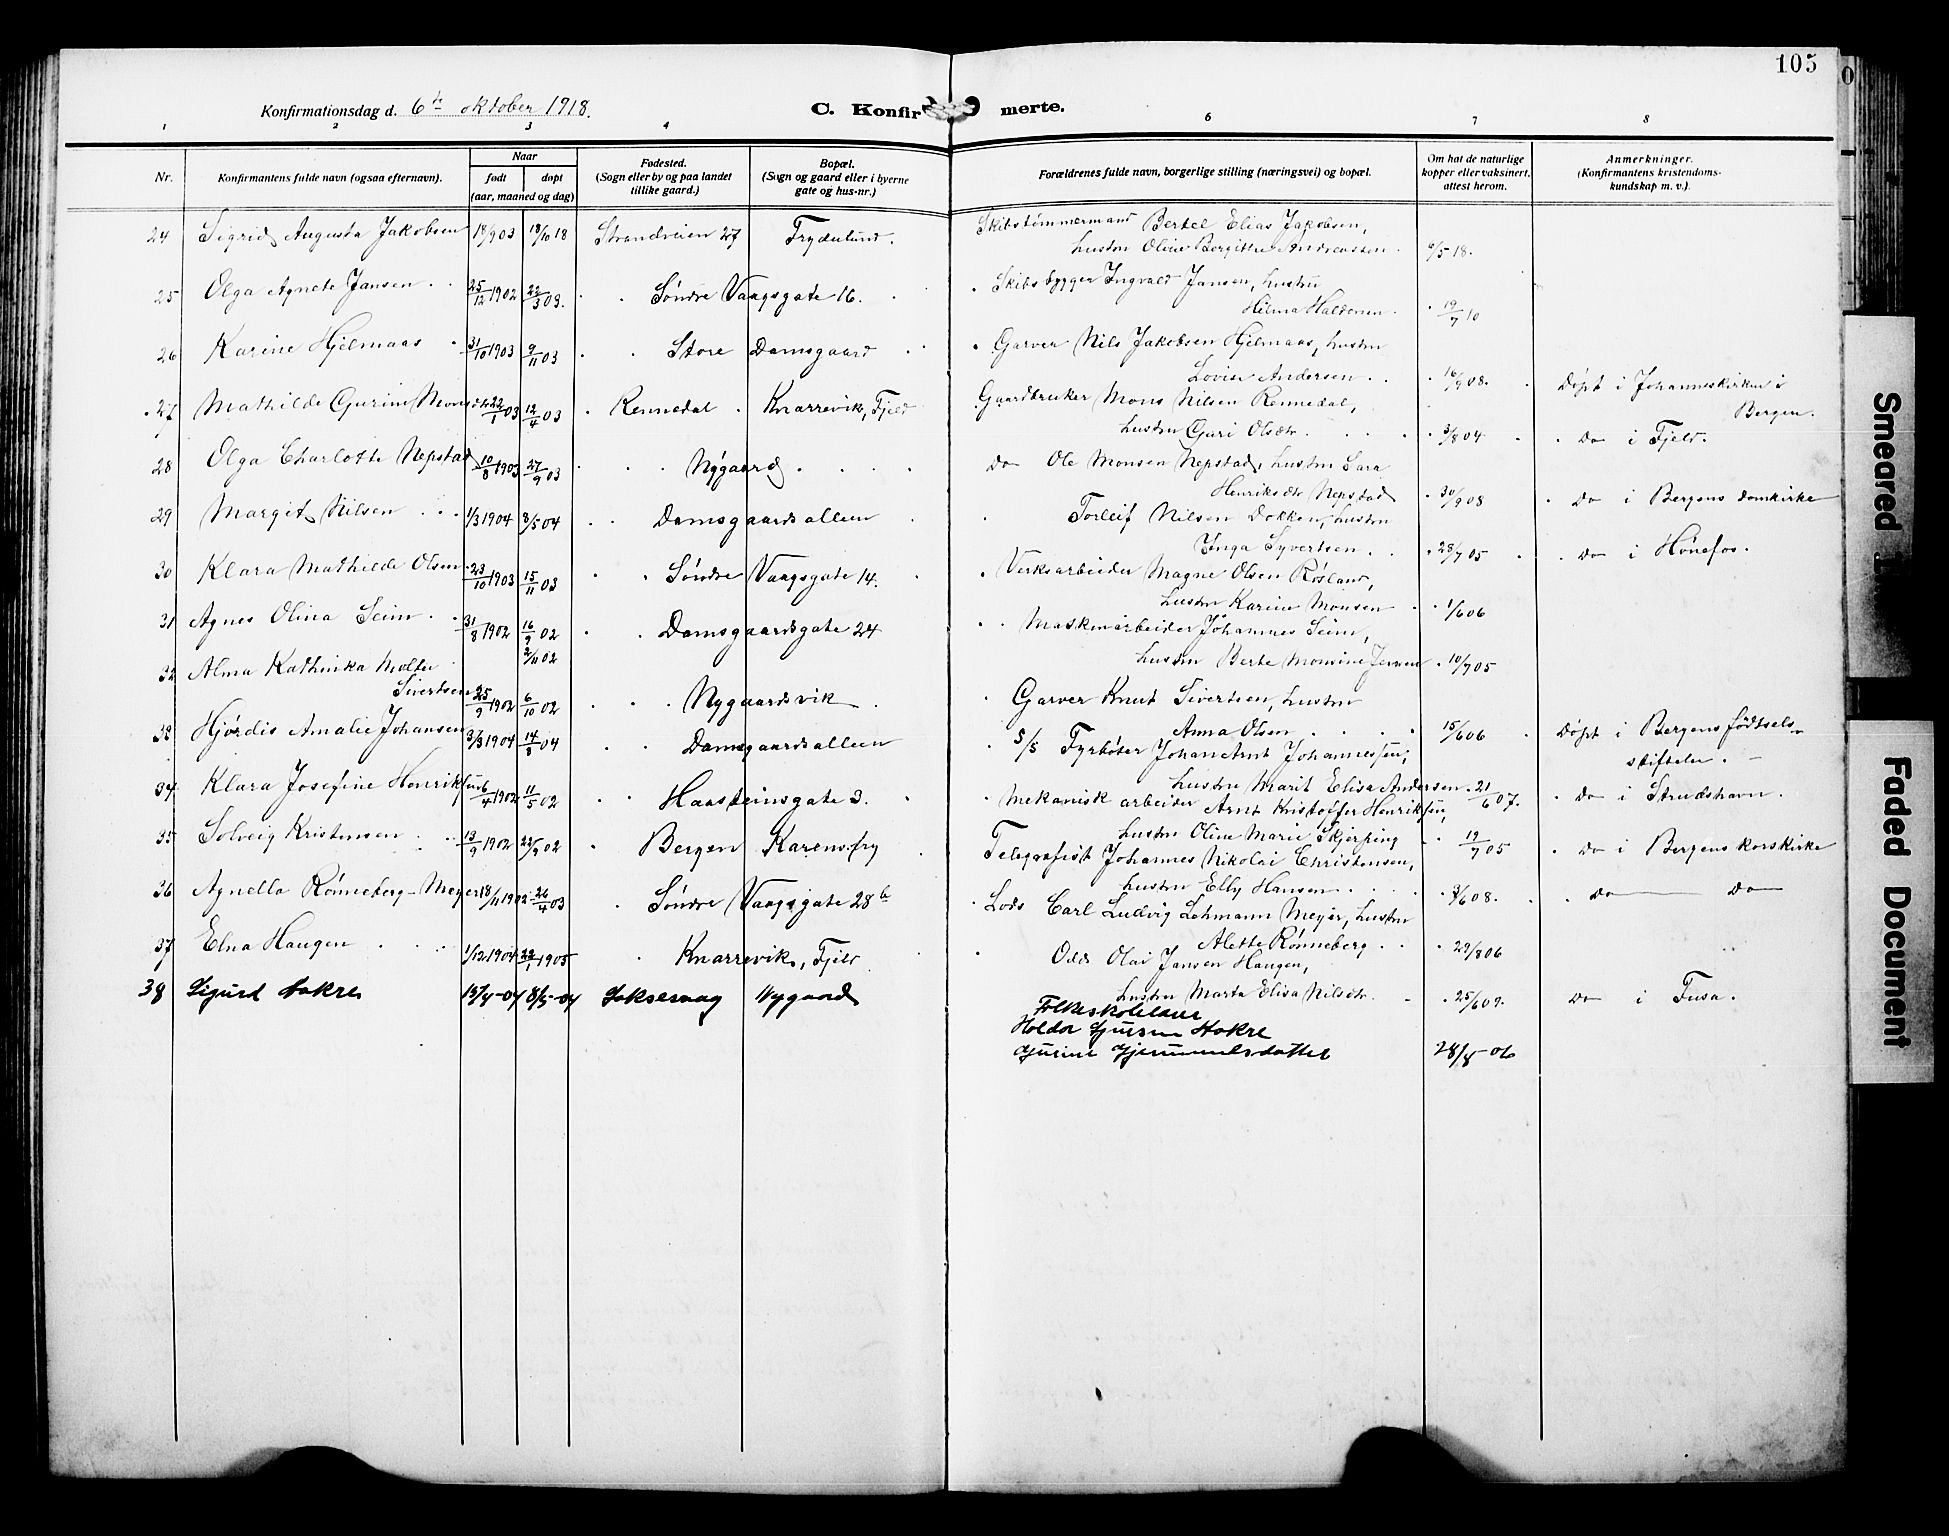 105
Konfirmationsdag d. 6te oktober 1918.
C. Konfirmerte.
1 2 3 4 6 7 8
Nr. Konfirmantens fulde navn (ogsaa efternavn). Naar født døpt (aar, maaned og dag) Fødested. (Sogn eller by og paa landet tillike gaard.) Bopæl. (Sogn og gaard eller i byerne gate og hus-nr.) Forældrenes fulde navn, borgerlige stilling (næringsvei) og bopæl. Om hat de naturlige kopper eller vaksinert, attest herom. Anmerkninger. (Konfirmantens kristendoms-kundskap m. v.).
24 Sigrid Augusta Jakobsen 18/9 03 18/10 18 Strandveien 27 Frydenlund. Skibstømmermand Bertel Elias Jakobsen,
hustru Oline Bergitte Andreassen. 6/5-18.
25 Olga Agnete Jansen 25/12 1902 22/3 03. Søndre Vaagsgate 16. Skibsbygger Ingvald Jansen, hustru
Hilma Haldorsen. 19/7 10
26 Karine Hjelmaas 31/10 1903 9/11 03 Store Damsgaard Garver Nils Jakobsen Hjelmaas, hustru
Lovise Andersen 16/9 08. Døpt i Johanneskirken i
Bergen.
27 Mathilde Gurine Monsdtr 22/1 03 12/4 03 Rennedal Knarrevik, Fjeld Gaardbruker Mons Nilsen Rennedal,
hustru Guri Olsdtr. 3/8 04 do i Fjeld.
28 Olga Charlotte Nepstad 10/8 1903 27/9 03 Nygaard do Ole Monsen Nepstad, hustru Sara
Henriksdtr Nepstad 30/9 08 do i Bergens domkirke
29 Margit Nilsen 1/3 1904 8/5 04 Damsgaardsalleen Torleif Nilsen Dokken, hustru
Inga Syvertsen 28/7 05 do i Hønefos.
30 Klara Mathilde Olsen 23/10 1903 15/11 03 Søndre Vaagsgate 14. Verksarbeider Magne Olsen Røsland,
hustru Karine Monsen 1/6 06
31 Agnes Olina Seim 31/8 1902 16/9 02 Damsgaardsgate 24 Maskinarbeider Johannes Seim,
2/11 02
hustru Berte Monsine Jensen 10/7 05
32 Alma Kathinka Molte
Sivertsen 25/9 1902 6/10 02 Nygaardsvik Garver Knut Sivertsen, hustru
Anna Olsen 15/6 06 Døpt i Bergens fødtsels-
stiftelse.
33 Hjørdis Amalie Johansen 31/3 1904 14/8 04 Damsgaardsalleen S/S Fyrbøter Johan Arnt Johannessen,
hustru Marit Elisa Andersen 21/6 07. do i Strudshavn.
34 Klara Josefine Henriksen 6/4 1902 11/5 02 Haasteinsgate 3. Mekanisk arbeider Arnt Kristoffer Henriksen,
hustru Oline Marie Skjerping 19/7 05 do i Bergens korskirke
35 Solveig Kristensen 13/9 1902 22/9 02 Bergen Karensfry Telegrafist Johannes Nikolai Christensen,
hustru Elly Hansen 3/6 08. do do
36 Agnella Rønneberg-Meyer 18/11 1902 26/4 03 Søndre Vaagsgate 28b Lods Carl Ludvig Lehmann Meyer, hustru
Alette Rønneberg 29/8 06
37 Elna Haugen 1/12 1904 22/1 1905 Knarrevik, Fjeld Odd Olai Jansen Haugen,
hustru Marta Elisa Nilsdtr. 25/6 09. do i Fusa.
38 Sigurd Hakre 13/4-04 8/5-04 Laksevaag Nygaard Folkeskolelærer
Holdor Hakre
28/8-06
Smeared
Faded Document